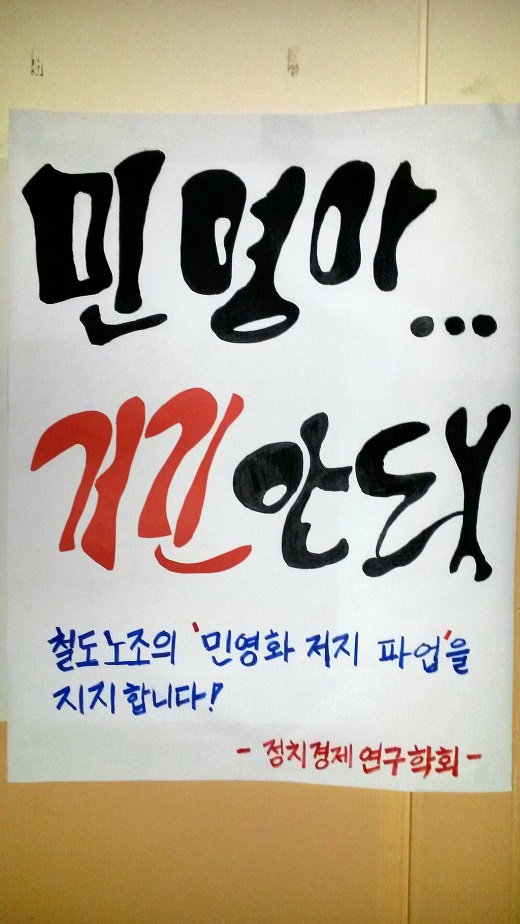 민영아...
거긴 안돼
철도노조의 '민영화 저지 파업'을
지지합니다!
- 정치경제연구학회 -